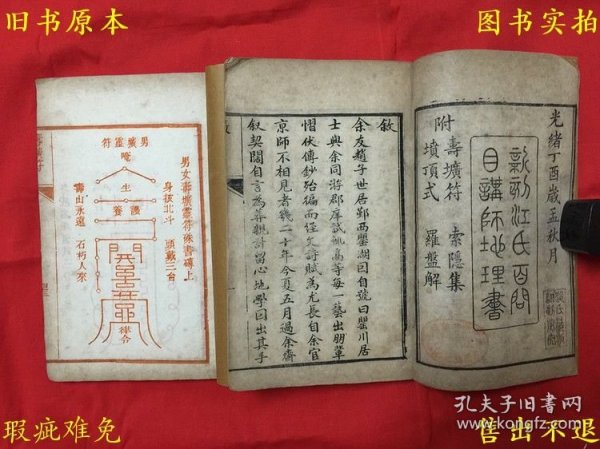 旧书原本
图书实拍
光緒丁酉歲孟秋月
新刻江氏百問
目講師地理書
附
壽壙符 索隱集
墳頂式 羅盤解
敘
余友趙子世居鄞西罌湖因自號曰罌川居
士與余同游郡庠試輒高等每一藝出朋輩
慴伏傳鈔殆徧而徑文詩賦為尤長自余官
京師不相見者幾二十年今夏五月過余齋
敘契闊自言為葬親計留心地學因出其手
男壙靈符
唵
生
養
護
律令
男女壽壙靈符硃書磚上
身披北斗 頭戴三台
壽山永遠 石朽人來
瑕疵难免
孔夫子旧书网
www.kongfz.com
售出不退